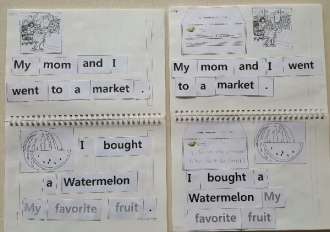 My mom and I
went to a market .
I bought
a Watermelon
My favorite fruit .
My mom and I went
to a market .
I bought a
Watermelon My
favorite fruit